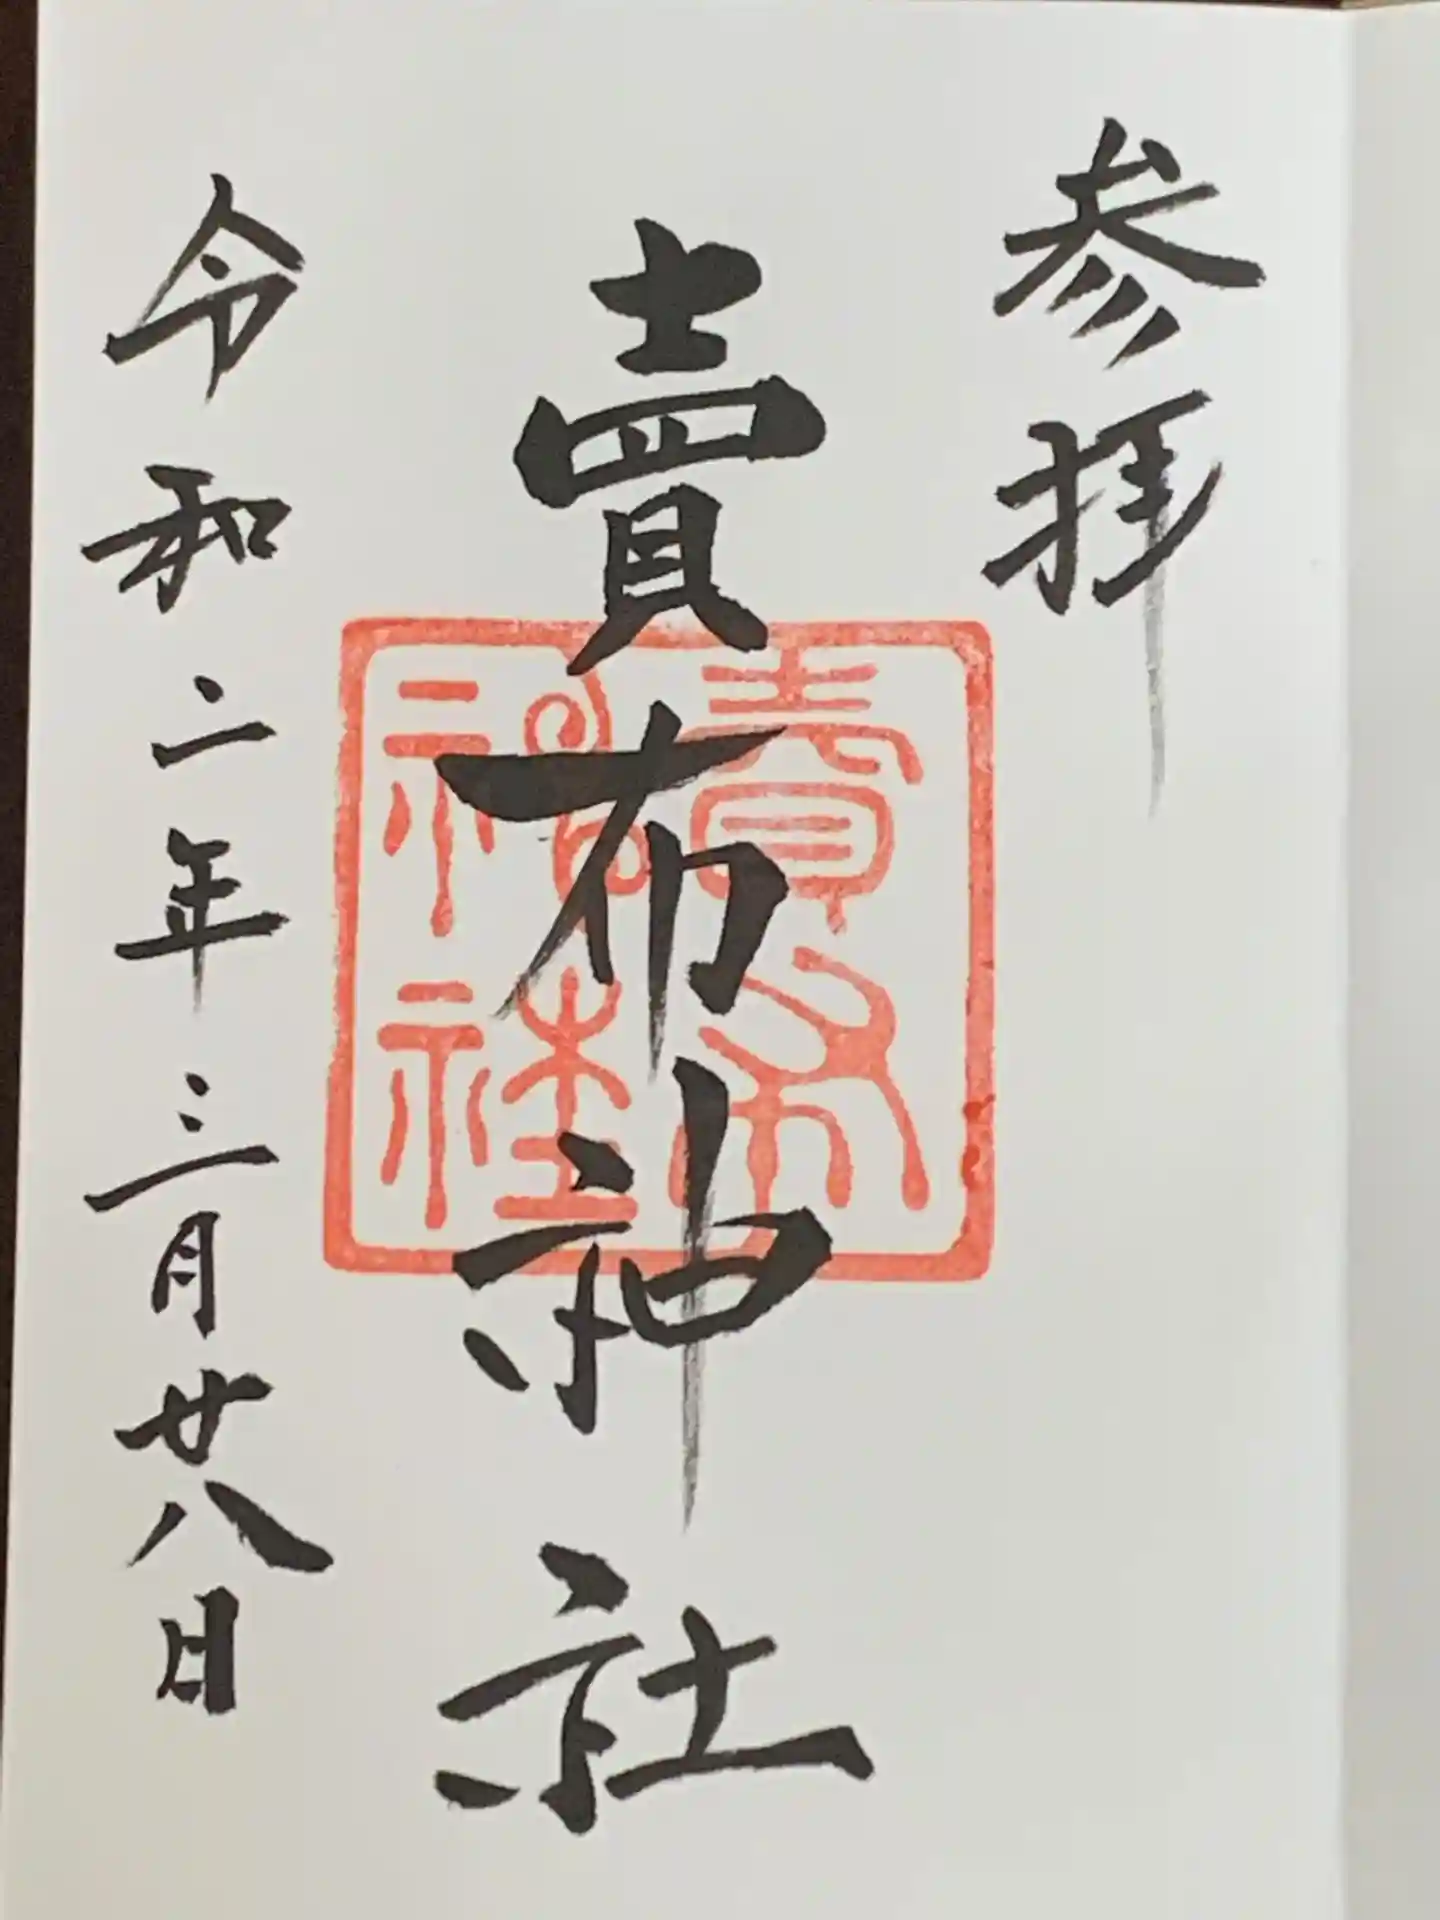 参拝
賣布神社
賣布
神社
令和二年三月廿八日